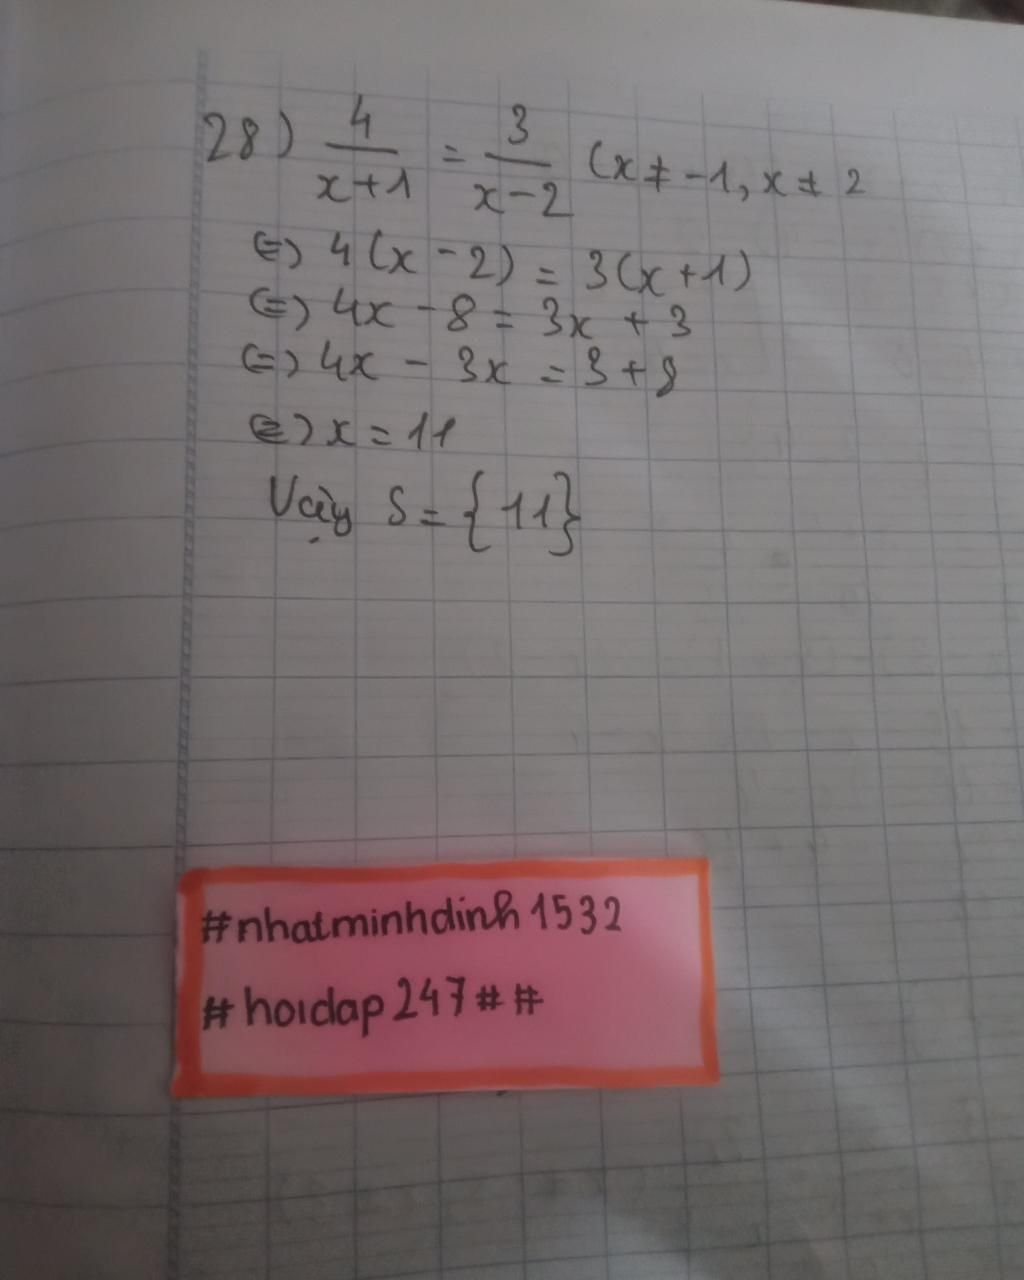 28) 4/(x+1) = 3/(x-2) (x ≠ -1, x ≠ 2
⇔ 4(x - 2) = 3(x+1)
⇔ 4x - 8 = 3x + 3
⇔ 4x - 3x = 3 + 8
⇔ x = 11
Vậy S = {11}
#nhatminhdinh1532
#hoidap247##